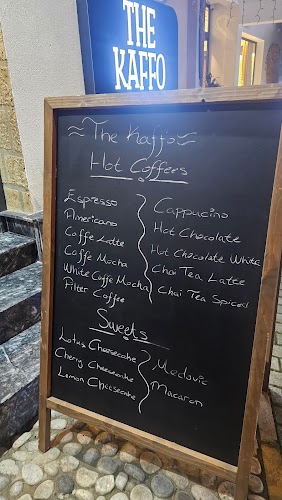 THE
KAFFO
The Kaffo
Hot Coffees
Espresso
Americano
Coffe Latte
Coffe Mocha
White Coffe Mocha
Filter Coffee
Cappucino
Hot Chocolate
Hot Chocolate White
Chai Tea Latte
Chai Tea Spiced
Sweets
Lotus Cheesecake
Cherry Cheesecake
Lemon Cheesecake
Medovic
Macaron